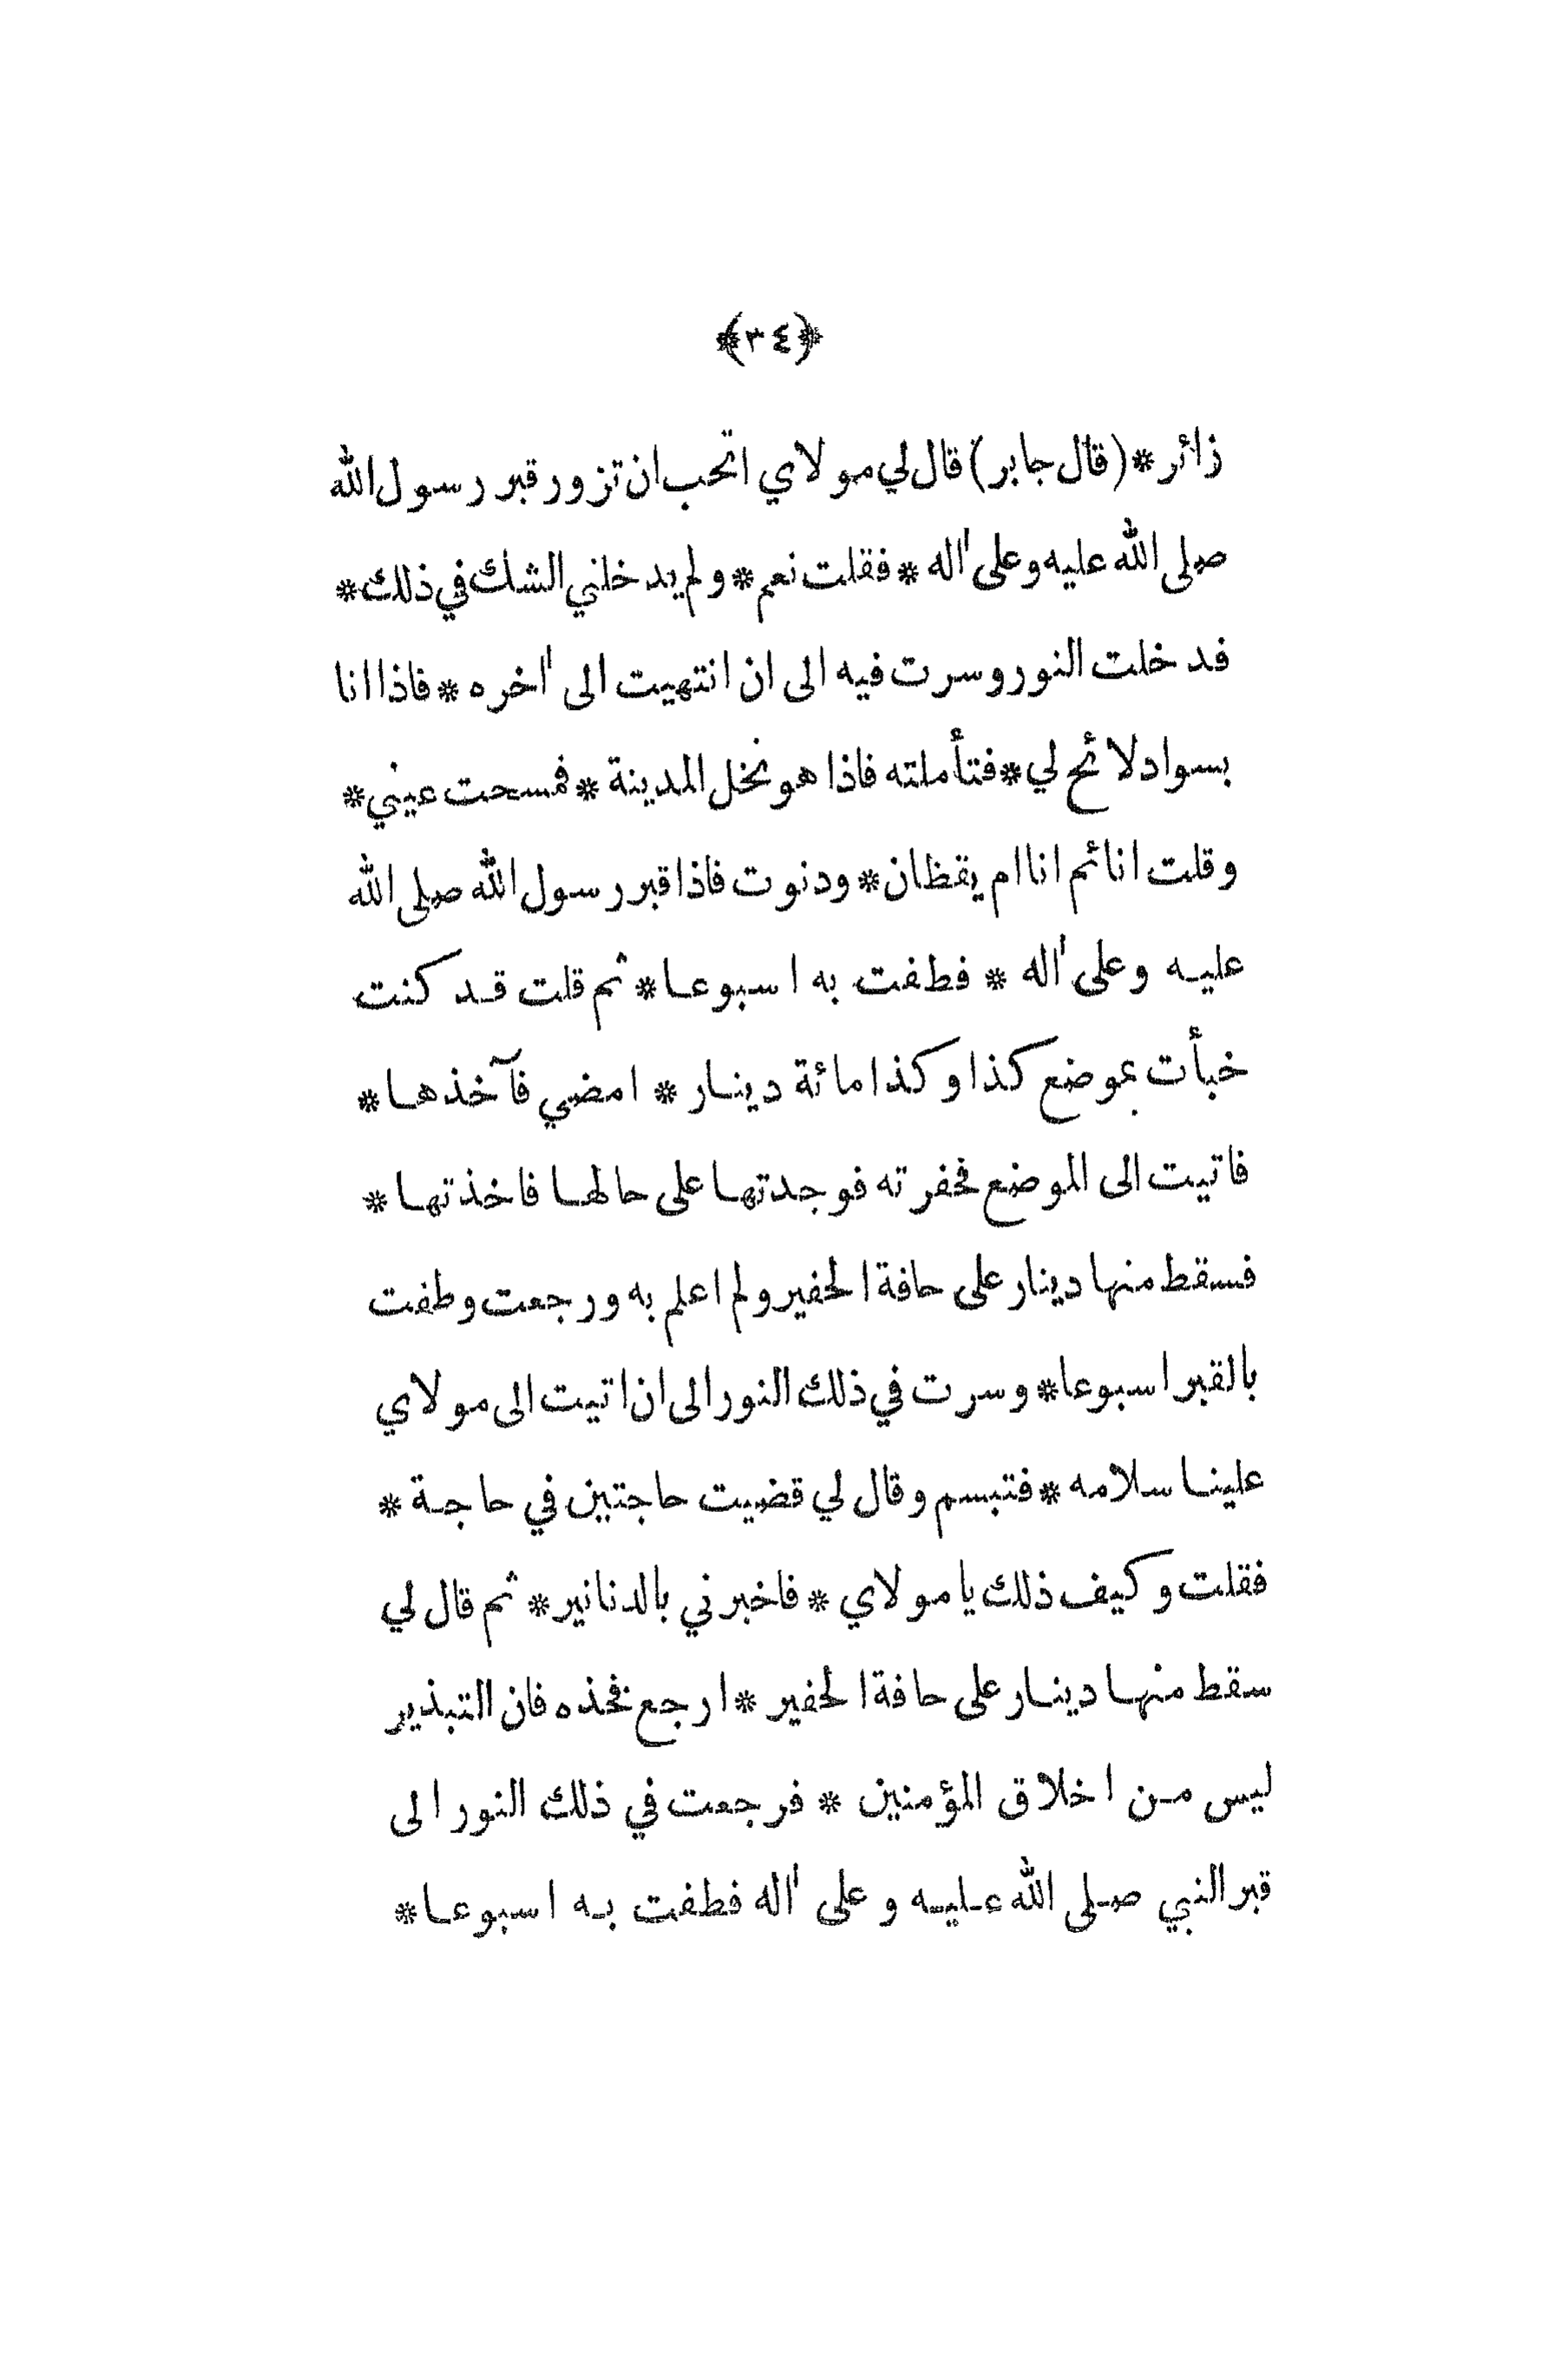 ﴿٣٤﴾
زائر * (قال جابر) قال لي مولاي اتحب ان تزور قبر رسول الله
صلى الله عليه وعلى اٰله * فقلت نعم * ولم يدخلني الشك في ذلك *
فدخلت النور وسرت فيه الى ان انتهيت الى اٰخره * فاذا انا
بسواد لائح لي * فتأملته فاذا هو نخل المدينة * فمسحت عيني *
وقلت انائم انا ام يقظان * ودنوت فاذا قبر رسول الله صلى الله
عليه وعلى اٰله * فطفت به اسبوعا * ثم قلت قد كنت
خبأت بموضع كذا وكذا مائة دينار * امضي فآخذها *
فاتيت الى الموضع فحفرته فوجدتها على حالها فاخذتها *
فسقط منها دينار على حافة الحفير ولم اعلم به ورجعت وطفت
بالقبر اسبوعا * وسرت في ذلك النور الى ان اتيت الى مولاي
علينا سلامه * فتبسم وقال لي قضيت حاجتين في حاجة *
فقلت وكيف ذلك يا مولاي * فاخبرني بالدنانير * ثم قال لي
سقط منها دينار على حافة الحفير * ارجع فخذه فان التبذير
ليس من اخلاق المؤمنين * فرجعت في ذلك النور الى
قبر النبي صلى الله عليه وعلى اٰله فطفت به اسبوعا *